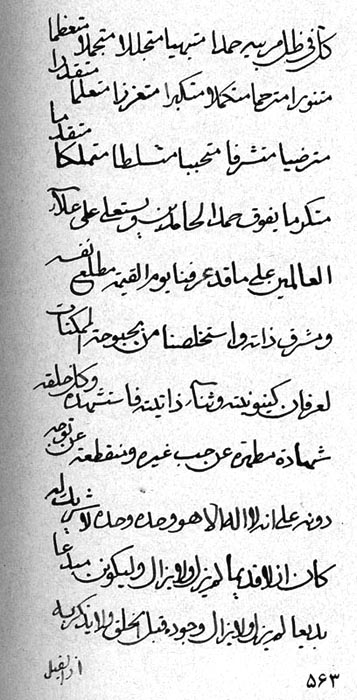 متعظما
كل في ظل مربيه حمدا متبهيا متجللا متجملا
متنورا مترحما متكملا متكبرا متعززا متعلما متقدرا
مترضيا متشرفا متحببا متسلطا متملكا متقدما
متكرما يفوق حمد الحامدين ويستعلي على علاء
العالمين على ما قد عرفنا يوم القيمة مطلع نفسه
ومشرق ذاته واستخلصنا من بحبوحة الممكنات
لعرفان كينونيته وثناء ذاتيته فاستشهده وكل خلقه
شهادة مطهرة عن حب غيره ومنقطعة عن توجه
دونه على انه لا اله الا هو وحده وحده لا شريك له
كان ازلا قديما لم يزل ولا يزال وليكونن مبدعا
بديعا لم يزل ولا يزال وجوده قبل الخلق ولا يذكر به
٥٦٣